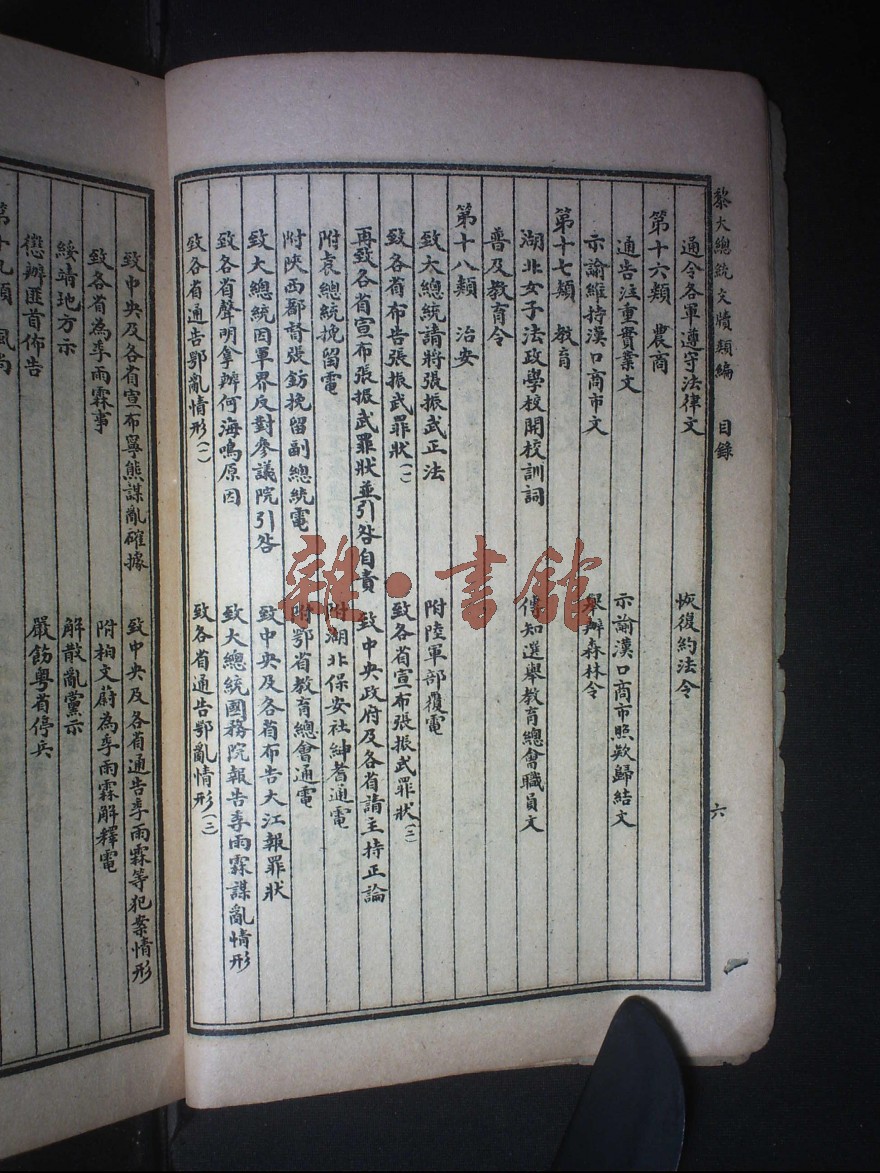 黎大總統文牘類編　目錄　六
通令各軍遵守法律文　恢復約法令
第十六類　農商
通告注重實業文　示諭漢口商市照欵歸結文
示諭維持漢口商市文　舉辦森林令
第十七類　教育
湖北女子法政學校開校訓詞　傳知選舉教育總會職員文
普及教育令
第十八類　治安
致大總統請將張振武正法　附陸軍部覆電
致各省布告張振武罪狀(一)　致各省宣布張振武罪狀(二)
再致各省宣布張振武罪狀並引咎自責　致中央政府及各省請主持正論
附袁總統挽留電　附湖北保安社紳耆通電
附陝西鄙督張鈁挽留副總統電　附鄂省教育總會通電
致大總統因軍界反對參議院引咎　致中央及各省布告大江報罪狀
致各省聲明拿辦何海鳴原因　致大總統國務院報告季雨霖謀亂情形
致各省通告鄂亂情形(一)　致各省通告鄂亂情形(二)
致中央及各省宣布寧熊謀亂確據　致中央及各省通告季雨霖等犯案情形
致各省為季雨霖事　附柏文蔚為季雨霖解釋電
綏靖地方示　解散亂黨示
懲辦匪首佈告　嚴飭粵省停兵
第十九類　風尚
雜·書館